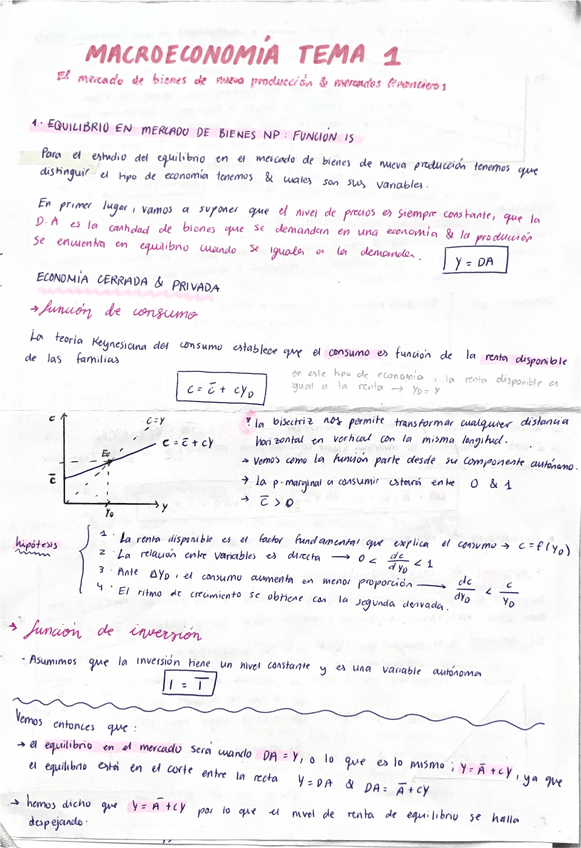 MACROECONOMÍA TEMA 1
El mercado de bienes de nueva producción & mercados financieros
1. EQUILIBRIO EN MERCADO DE BIENES NP: FUNCIÓN IS
Para el estudio del equilibrio en el mercado de bienes de nueva producción tenemos que
distinguir el tipo de economía tenemos & cuales son sus variables.
En primer lugar, vamos a suponer que el nivel de precios es siempre constante, que la
D.A es la cantidad de bienes que se demandan en una economía & la producción
se encuentra en equilibrio cuando se iguala a la demanda.
Y = DA
ECONOMÍA CERRADA & PRIVADA
→ función de consumo
La teoría Keynesiana del consumo establece que el consumo es función de la renta disponible
de las familias
C = C̅ + CYD
en este tipo de economía, la renta disponible es
igual a la renta → YD = Y
C
C=Y
C = C̅ + CY
E0
C̅
Y0
Y
la bisectriz nos permite transformar cualquier distancia
horizontal en vertical con la misma longitud.
→ Vemos como la función parte desde su componente autónomo.
→ la p. marginal a consumir estará entre 0 & 1
→ C̅ > 0
hipótesis
1. La renta disponible es el factor fundamental que explica el consumo → C = f(YD)
2. La relación entre variables es directa → 0 < dc/dYD < 1
3. Ante ΔYD, el consumo aumenta en menor proporción → dc/dYD < C/YD
4. El ritmo de crecimiento se obtiene con la segunda derivada.
→ función de inversión
· Asumimos que la inversión tiene un nivel constante y es una variable autónoma
I = I̅
Vemos entonces que:
→ el equilibrio en el mercado será cuando DA = Y, o lo que es lo mismo; Y = A̅ + CY, ya que
el equilibrio está en el corte entre la recta Y = DA & DA = A̅ + CY
→ hemos dicho que Y = A̅ + CY por lo que el nivel de renta de equilibrio se halla
despejando.